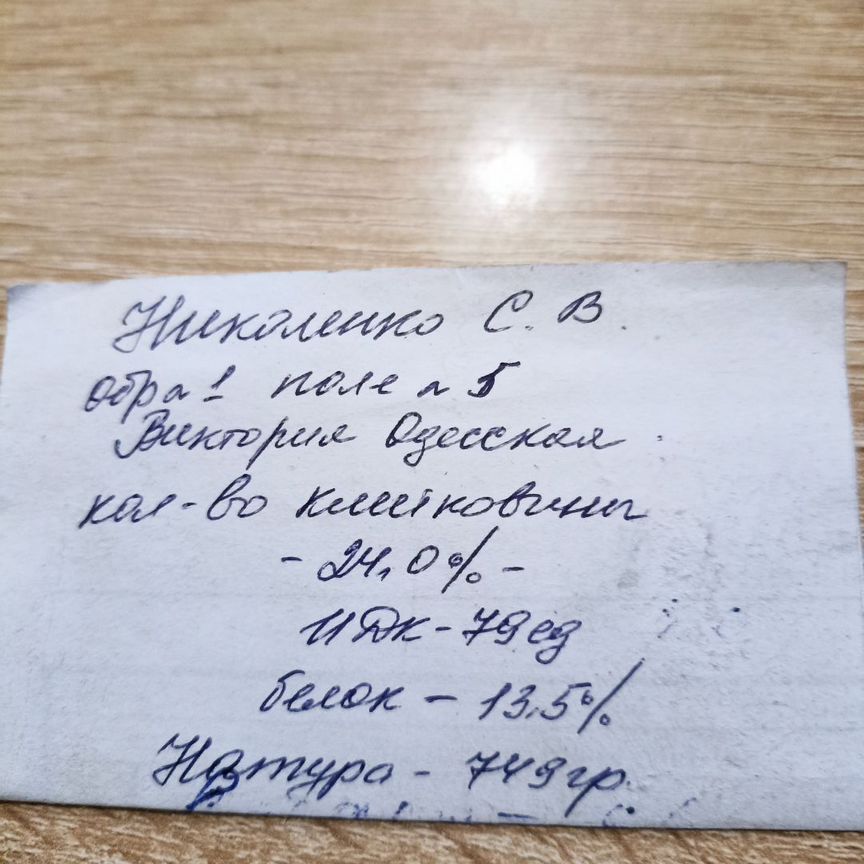 Николенко С. В.
обр № 1 поле № 5
Виктория Одесская
кол-во клейковины
- 24,0% -
ИДК - 79 ед
белок - 13,5%
Натура - 749 гр